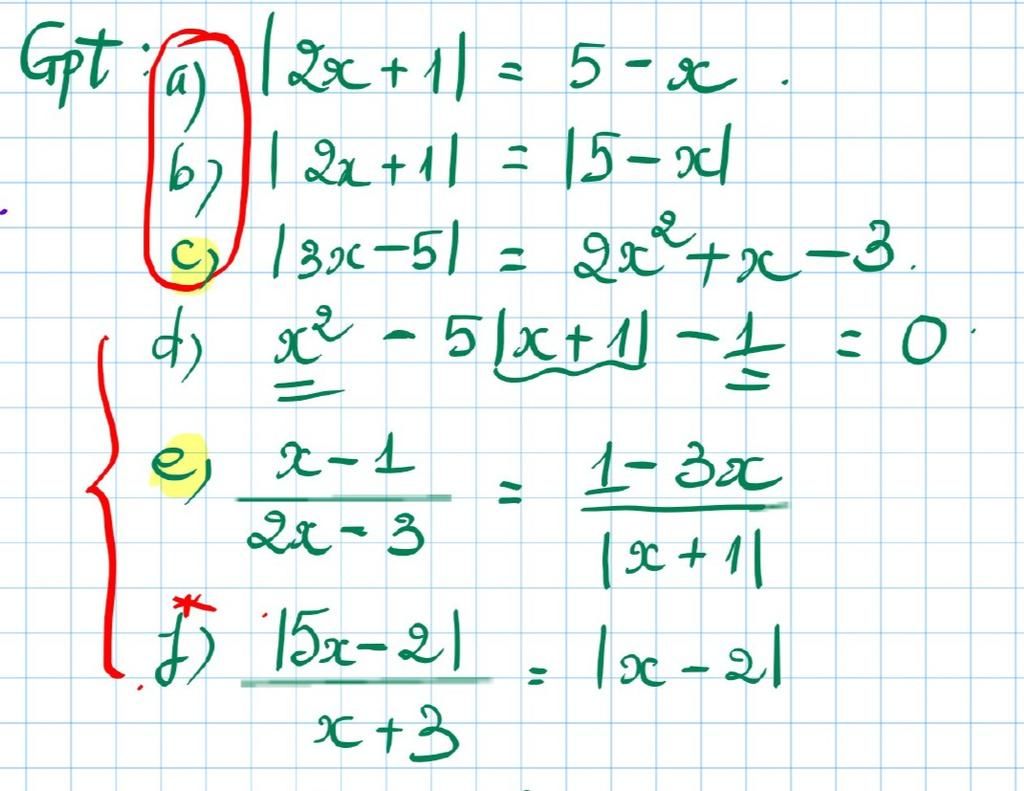 Gpt: a) |2x+1| = 5-x.
b) |2x+1| = |5-x|
c) |3x-5| = 2x²+x-3.
d) x² - 5|x+1| - 1 = 0.
e) (x-1)/(2x-3) = (1-3x)/|x+1|
*f) |5x-2|/(x+3) = |x-2|